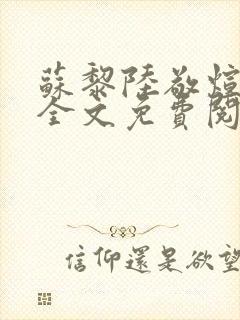 蘇黎陸敬煊
全文免費閱
信仰還是欲望